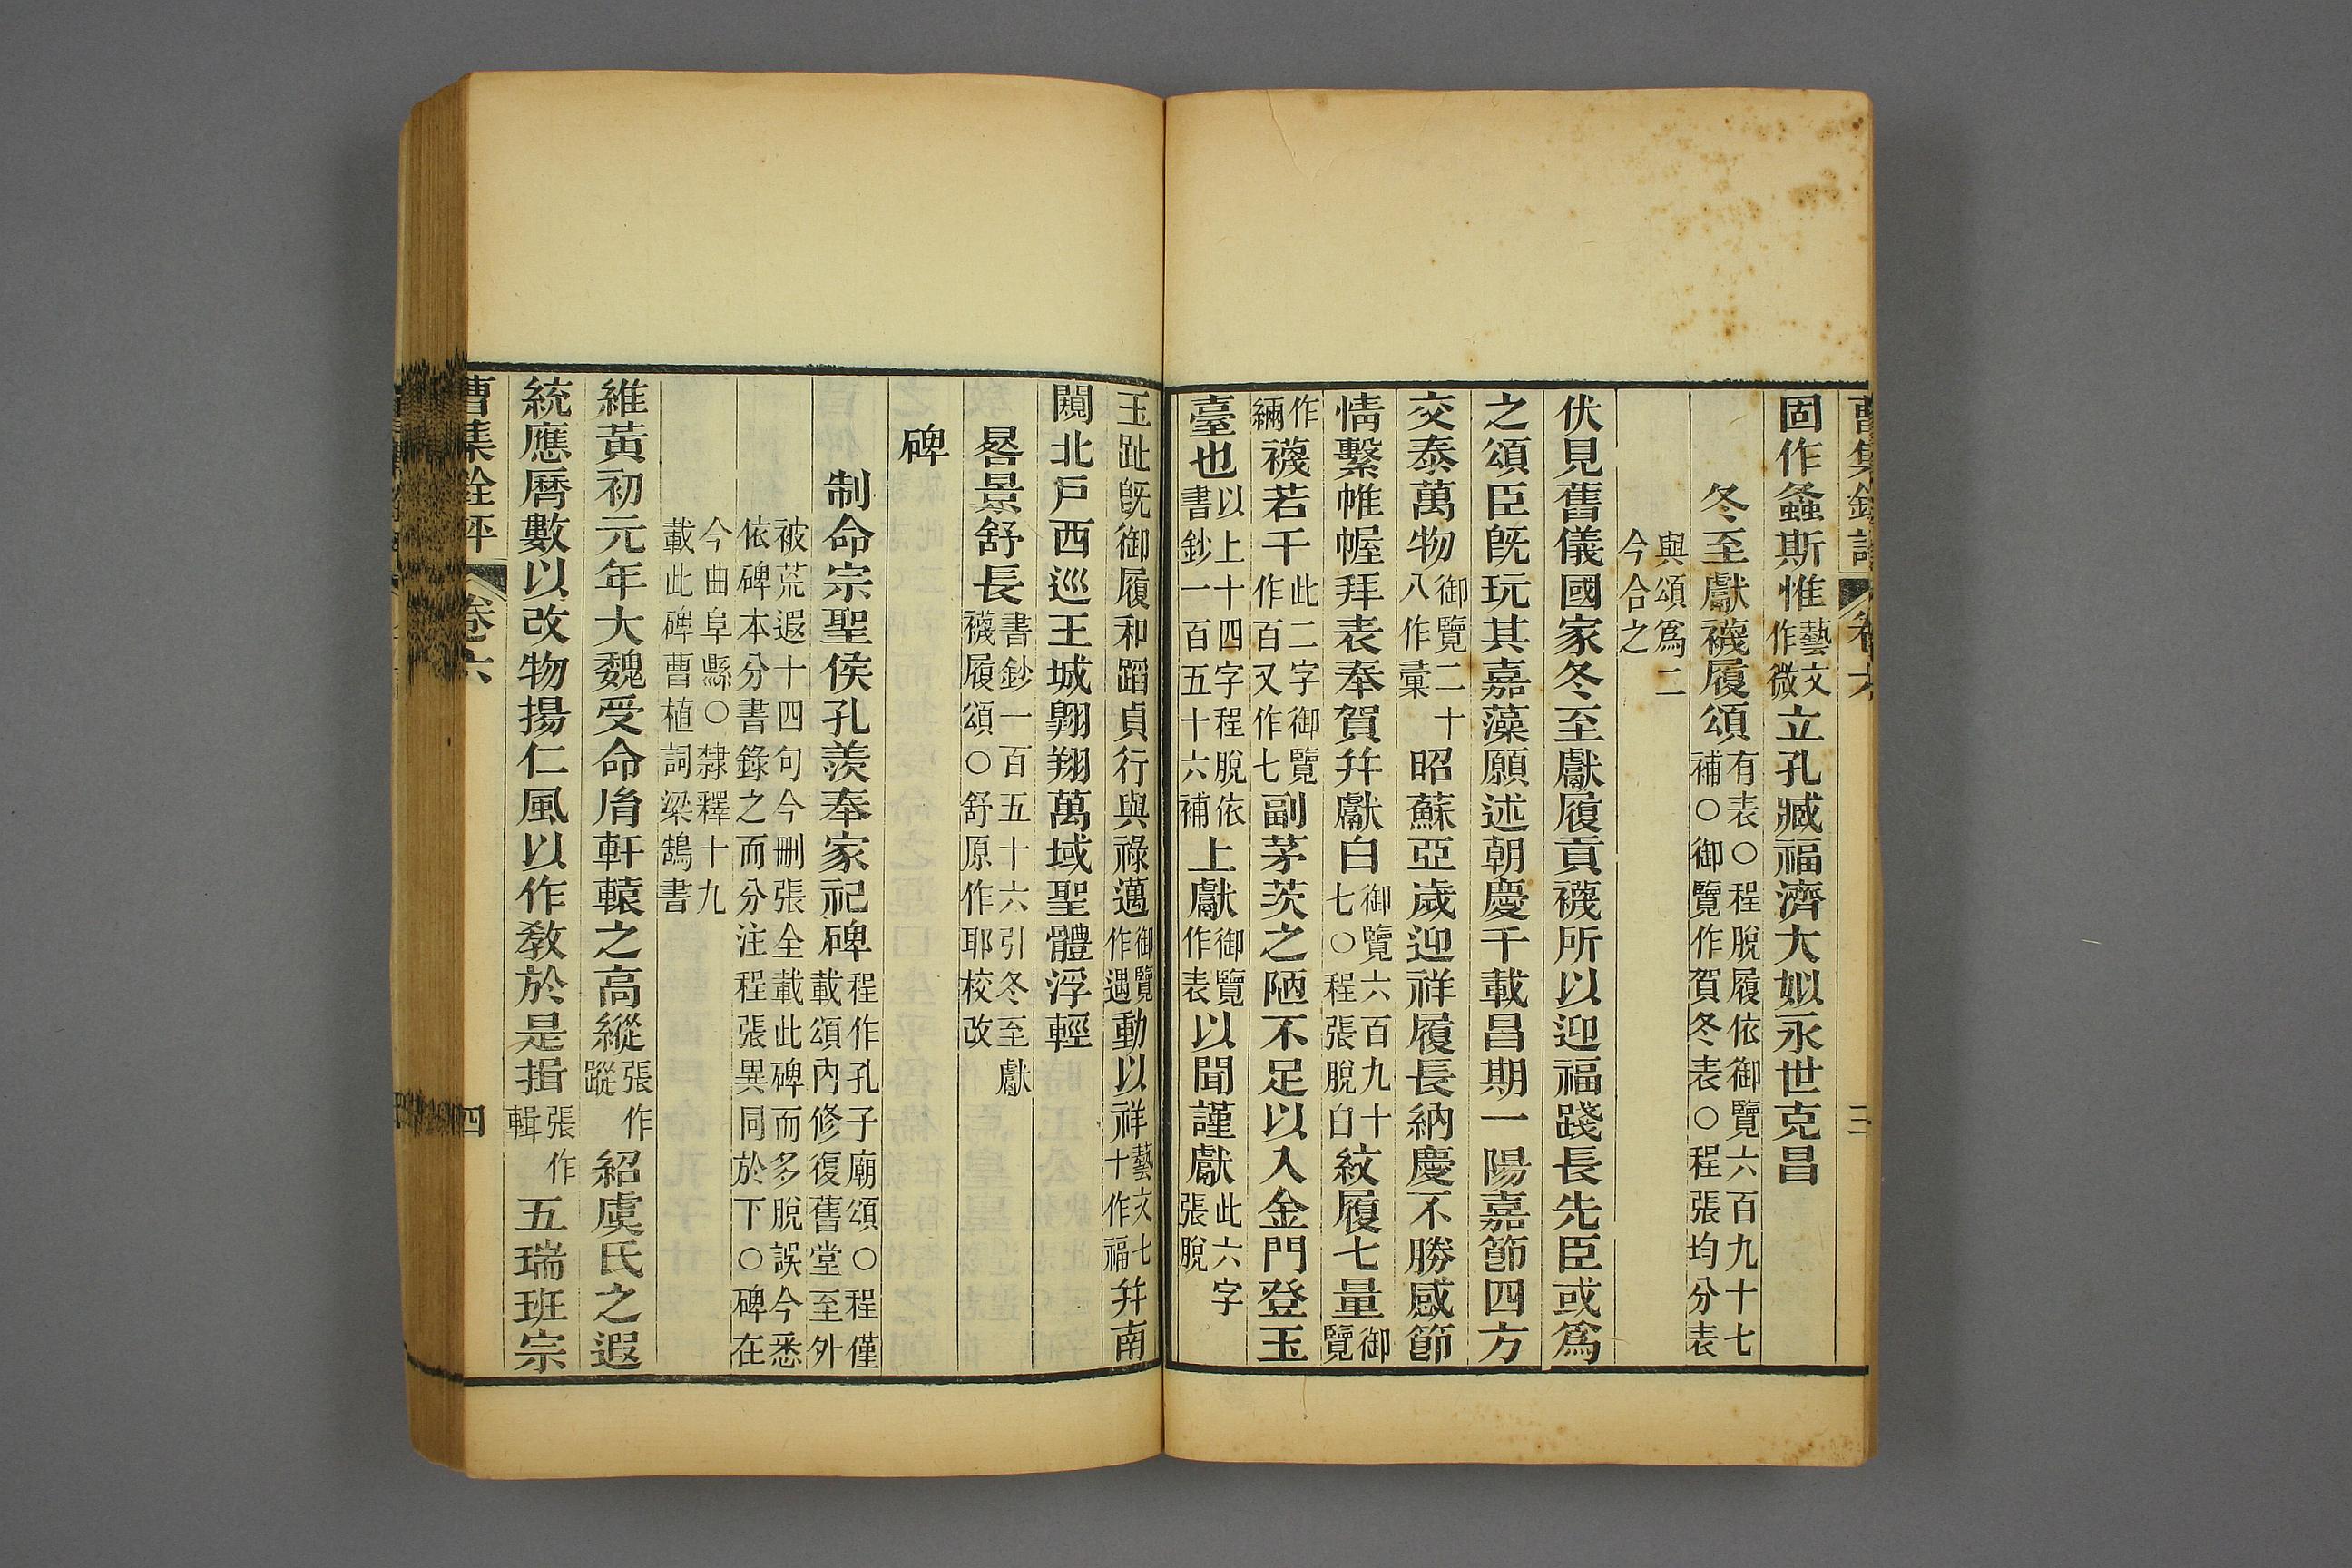 曹集銓評 卷六 三
固作螽斯惟藝文作微立孔臧福濟大姒永世克昌
冬至獻襪履頌有表○程脫履依御覽六百九十七補○御覽作賀冬表○程張均分表
與頌爲二今合之
伏見舊儀國家冬至獻履貢襪所以迎福踐長先臣或爲
之頌臣旣玩其嘉藻願述朝慶千載昌期一陽嘉節四方
交泰萬物御覽二十八作彙昭蘇亞歲迎祥履長納慶不勝感節
情繫帷幄拜表奉賀幷獻白御覽六百九十七○程張脫白紋履七量御覽
作緉襪若干此二字御覽作百又作七副茅茨之陋不足以入金門登玉
臺也以上十四字程脫依書鈔一百五十六補上獻御覽作表以聞謹獻此六字張脫
玉趾旣御履和蹈貞行與祿邁御覽作遇動以祥藝文七十作福幷南
闚北戶西巡王城翺翔萬域聖體浮輕
晷景舒長書鈔一百五十六引冬至獻襪履頌○舒原作耶校改
碑
制命宗聖侯孔羨奉家祀碑程作孔子廟頌○程僅載頌內修復舊堂至外
被荒遐十四句今刪張全載此碑而多脫誤今悉依碑本分書錄之而分注程張異同於下○碑在
今曲阜縣○隸釋十九載此碑曹植詞梁鵠書
維黃初元年大魏受命胤軒轅之高縱張作蹤紹虞氏之遐
統應曆數以改物揚仁風以作敎於是揖張作輯五瑞班宗
曹集銓評 卷六 四